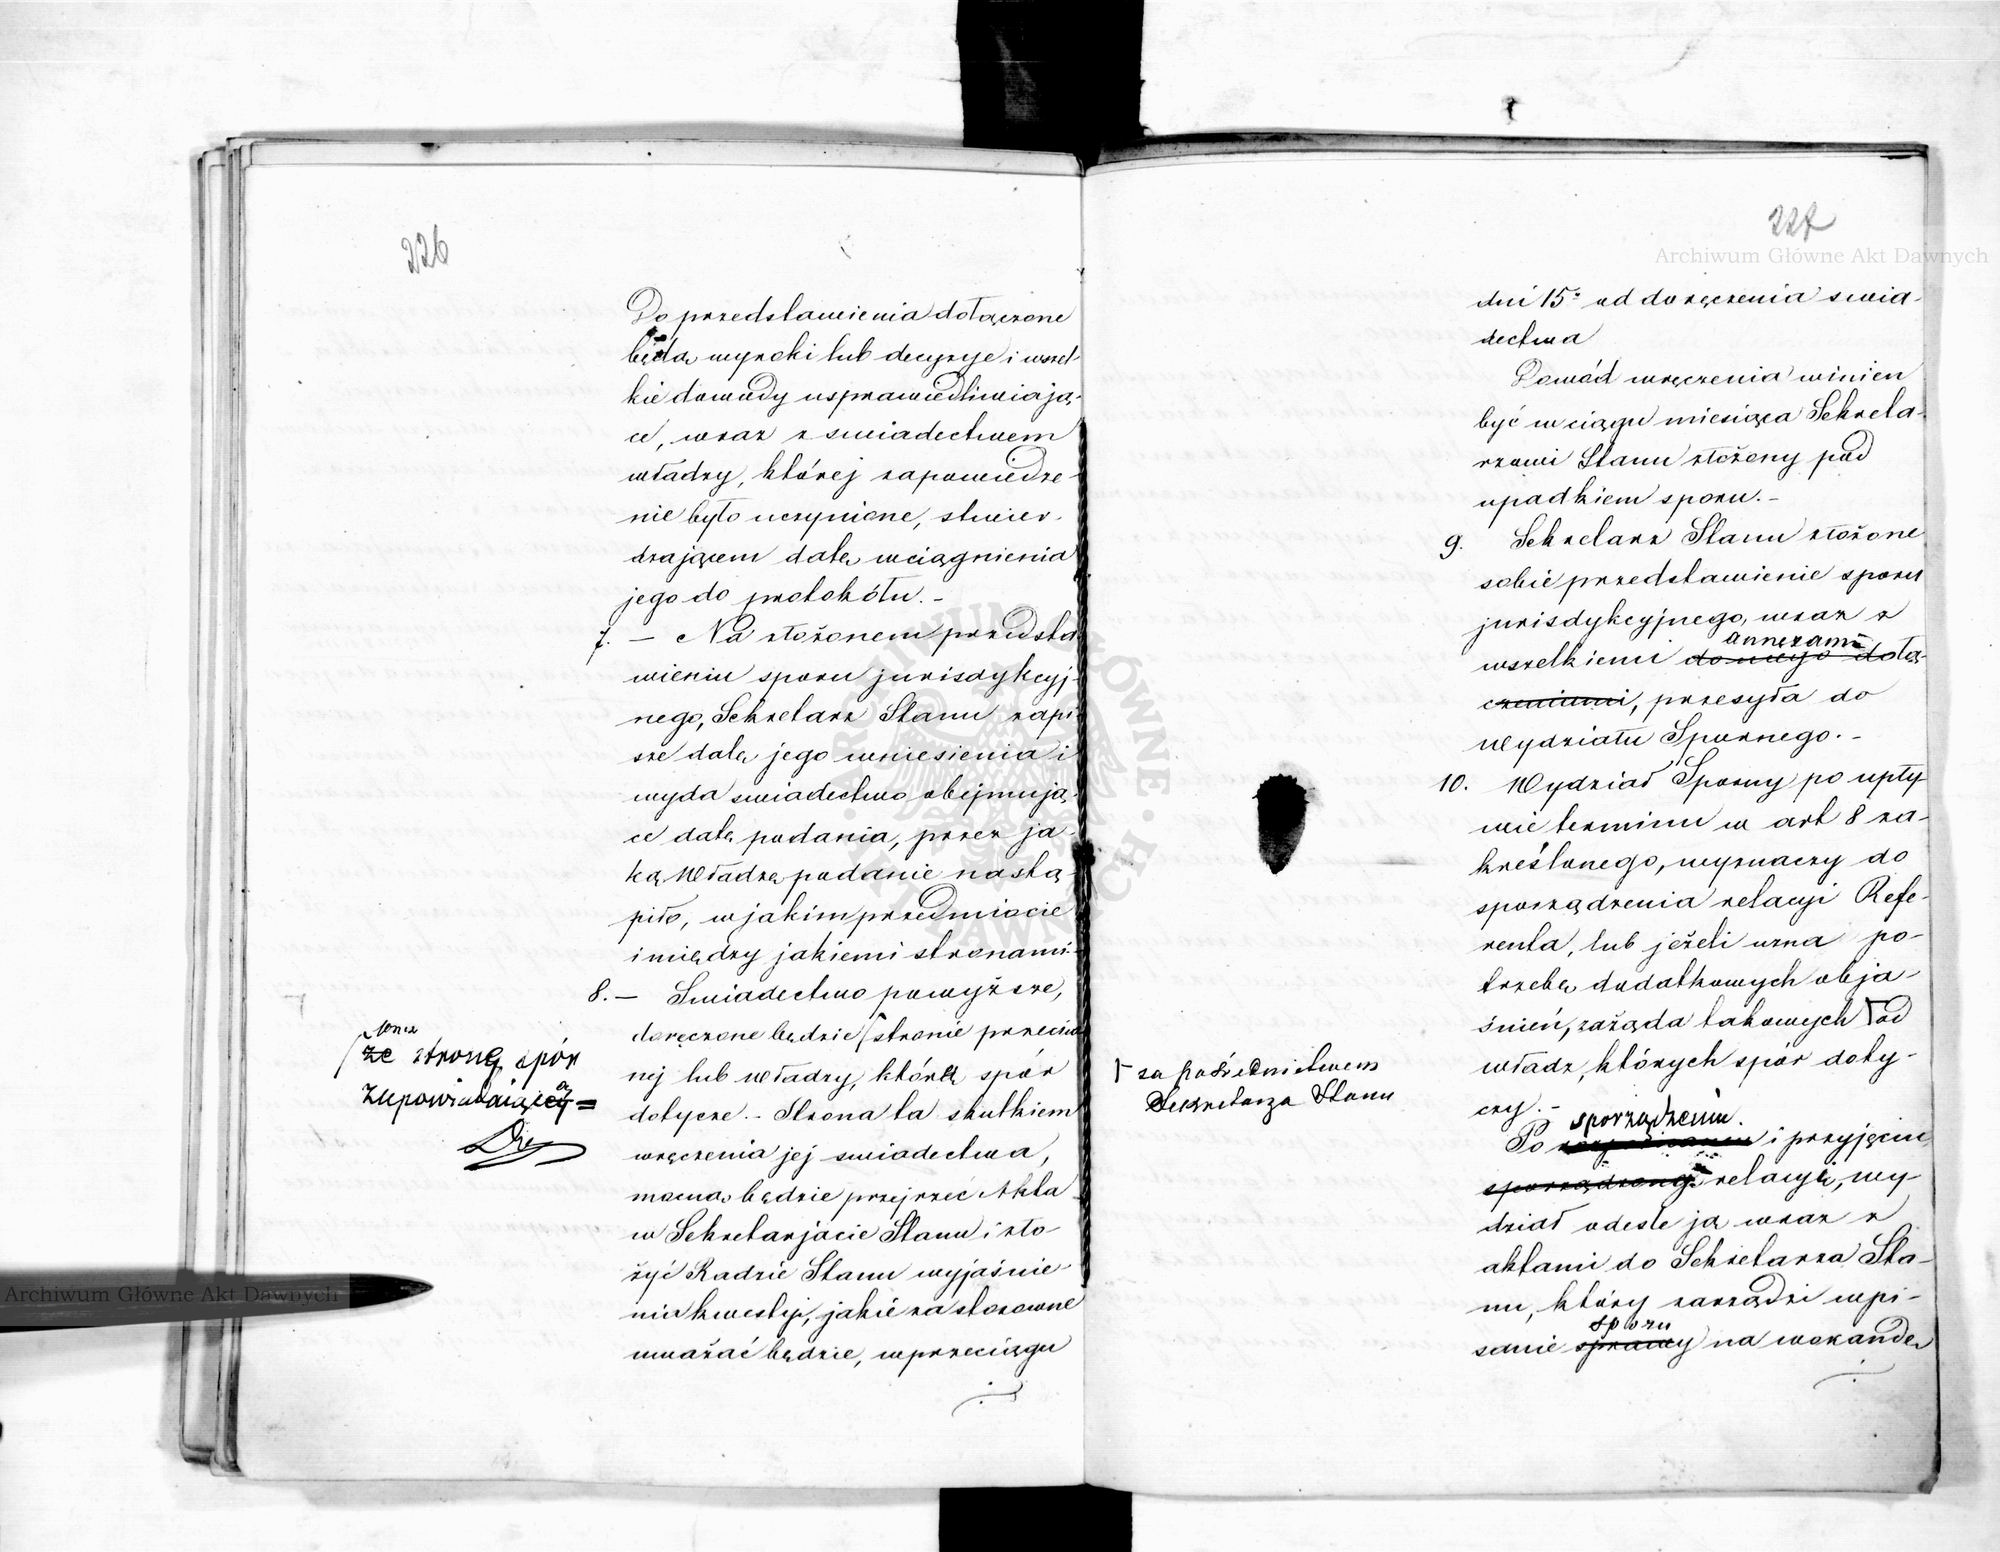 226
Do przedstawienia dołączone
będą wyroki lub decyzye i wszel-
kie dowody usprawiedliwiają-
ce, wraz z swiadectwem
władzy, której zapowiedze-
nie było uczynione, stwier-
dzającem datę wciągnienia
jego do protokółu.-
7. — Na złożonem przedsta
wieniu sporu jurisdykcyj-
nego, Sekretarz Stanu zapi-
sze datę jego wniesienia i
wyda swiadectwo obejmują-
ce datę podania, przez ja-
ką Władzę podanie nastą-
piło, w jakim przedmiocie
i między jakiemi stronami-
8. — Swiadectwo powyższe,
doręczone będzie stronie przeciw
nej lub władzy, której spór
dotycze.- Strona ta skutkiem
wręczenia jej swiadectwa,
mocna będzie przejrzeć Akta
w Sekretarjacie Stanu i zło-
żyć Radzie Stanu wyjaśnie-
nia kwestyi, jakie za stosowne
uważać będzie, w przeciągu
przez
że stronę spór
zapowiadającą =
227
dni 15° od doręczenia swia-
dectwa
Dowód wręczenia winien
być w ciągu miesiąca Sekreta-
rzowi Stanu złożony pod
upadkiem sporu.-
9. Sekretarz Stanu złożone
sobie przedstawienie sporu
jurisdykcyjnego, wraz z
annexami
wszelkiemi do niego dołą-
czeniami, przesyła do
Wydziału Spornego.-
10. Wydział Sporny po upły-
wie terminu w art 8 za-
kreślonego, wyznaczy do
sporządzenia relacyi Refe-
renta, lub jeżeli uzna po-
trzebę dodatkowych obja-
śnień, zażąda takowych od
władz, których spór doty-
czy.-
za pośrednictwem
Sekretarza Stanu
sporządzeniu
Po i przyjęciu
sporządzonej relacyi, wy-
dział odeśle ją wraz z
aktami do Sekretarza Sta-
nu, który zarządzi wpi-
sporu
sanie sprawy na wokandę
Archiwum Główne Akt Dawnych
Archiwum Główne Akt Dawnych
ARCHIWUM GŁÓWNE AKT DAWNYCH